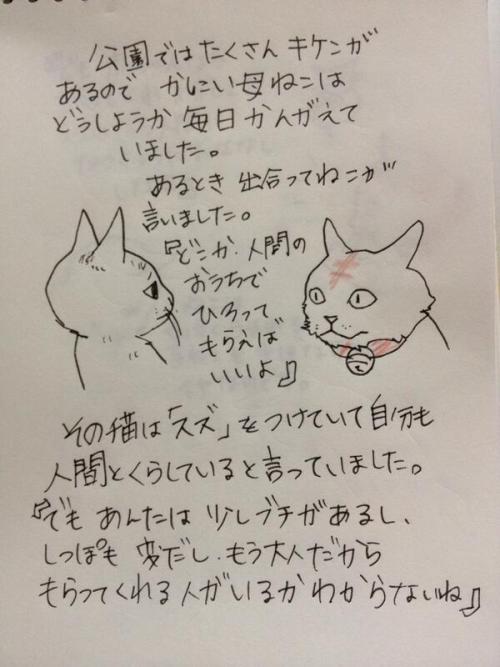 公園ではたくさん キケンが
あるので かにい母ねこは
どうしようか 毎日 かんがえて
いました。
あるとき 出合ってねこが
言いました。
『どこか、人間の
おうちで
ひろって
もらえば
いいよ』
その猫は「スズ」をつけていて 自分も
人間とくらしていると言っていました。
『でも あんたは 少しブチがあるし、
しっぽも 変だし、もう大人だから
もらってくれる人がいるかわからないね』